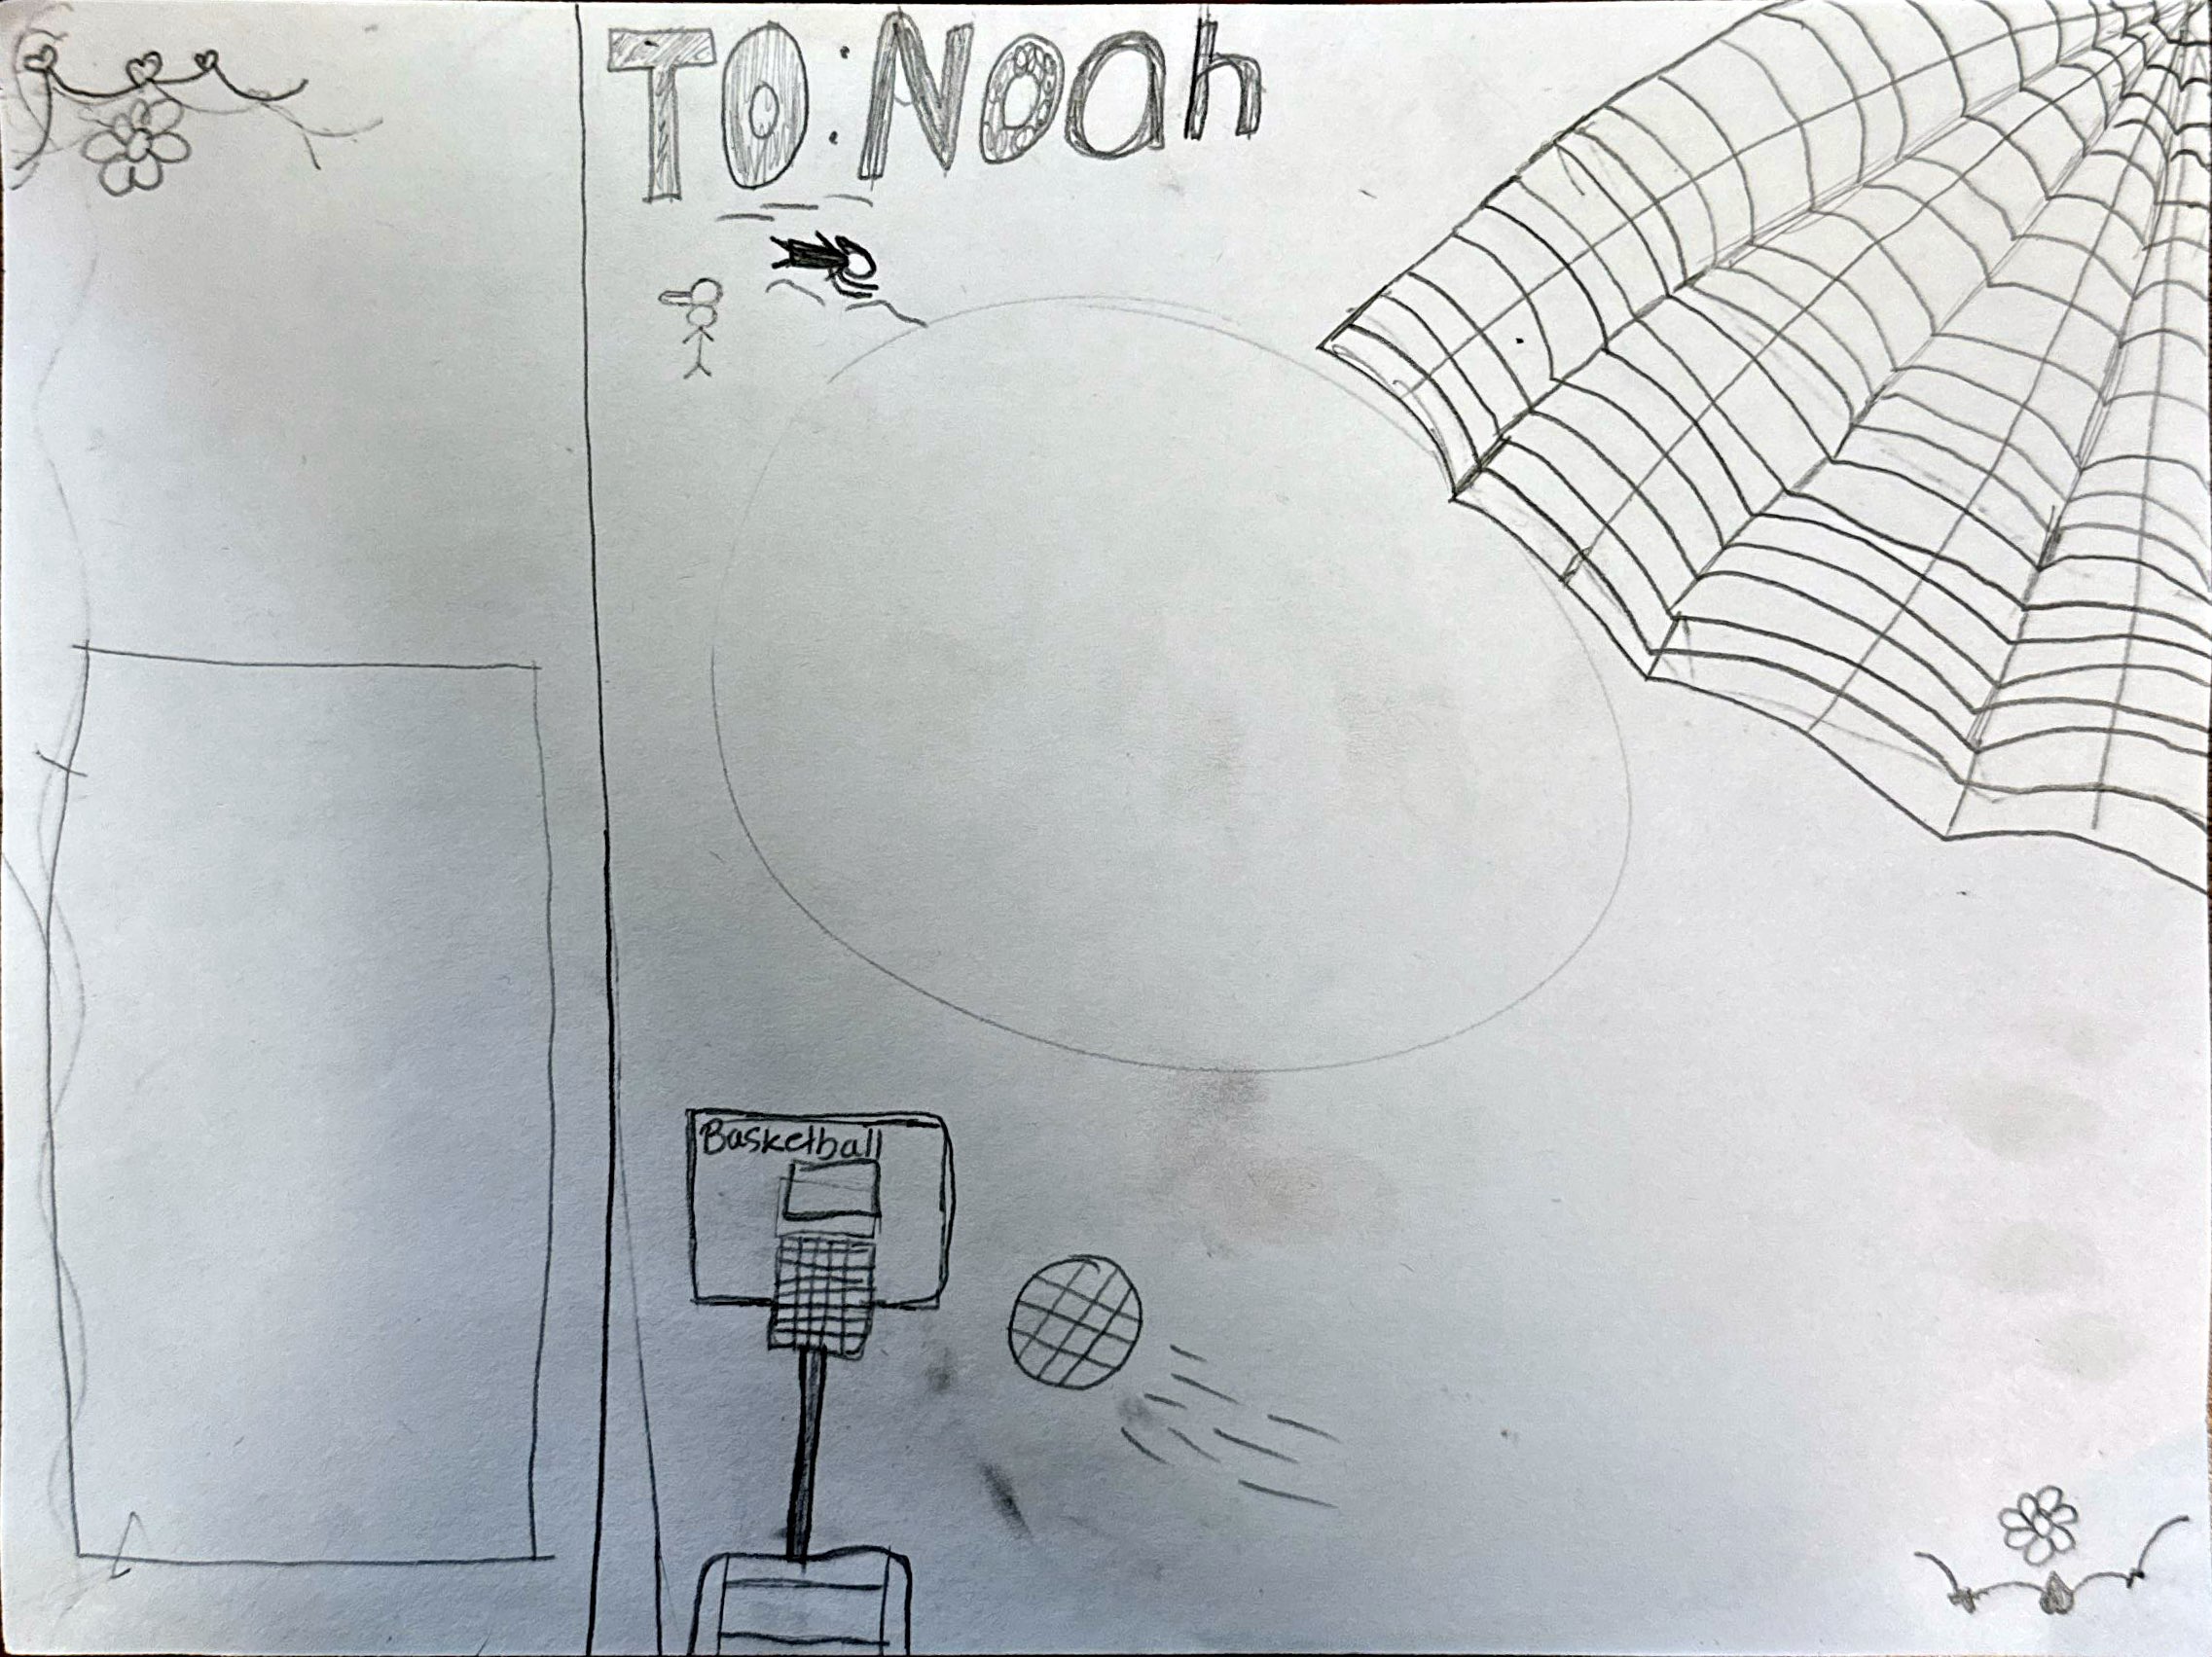 TO: Noah
Basketball